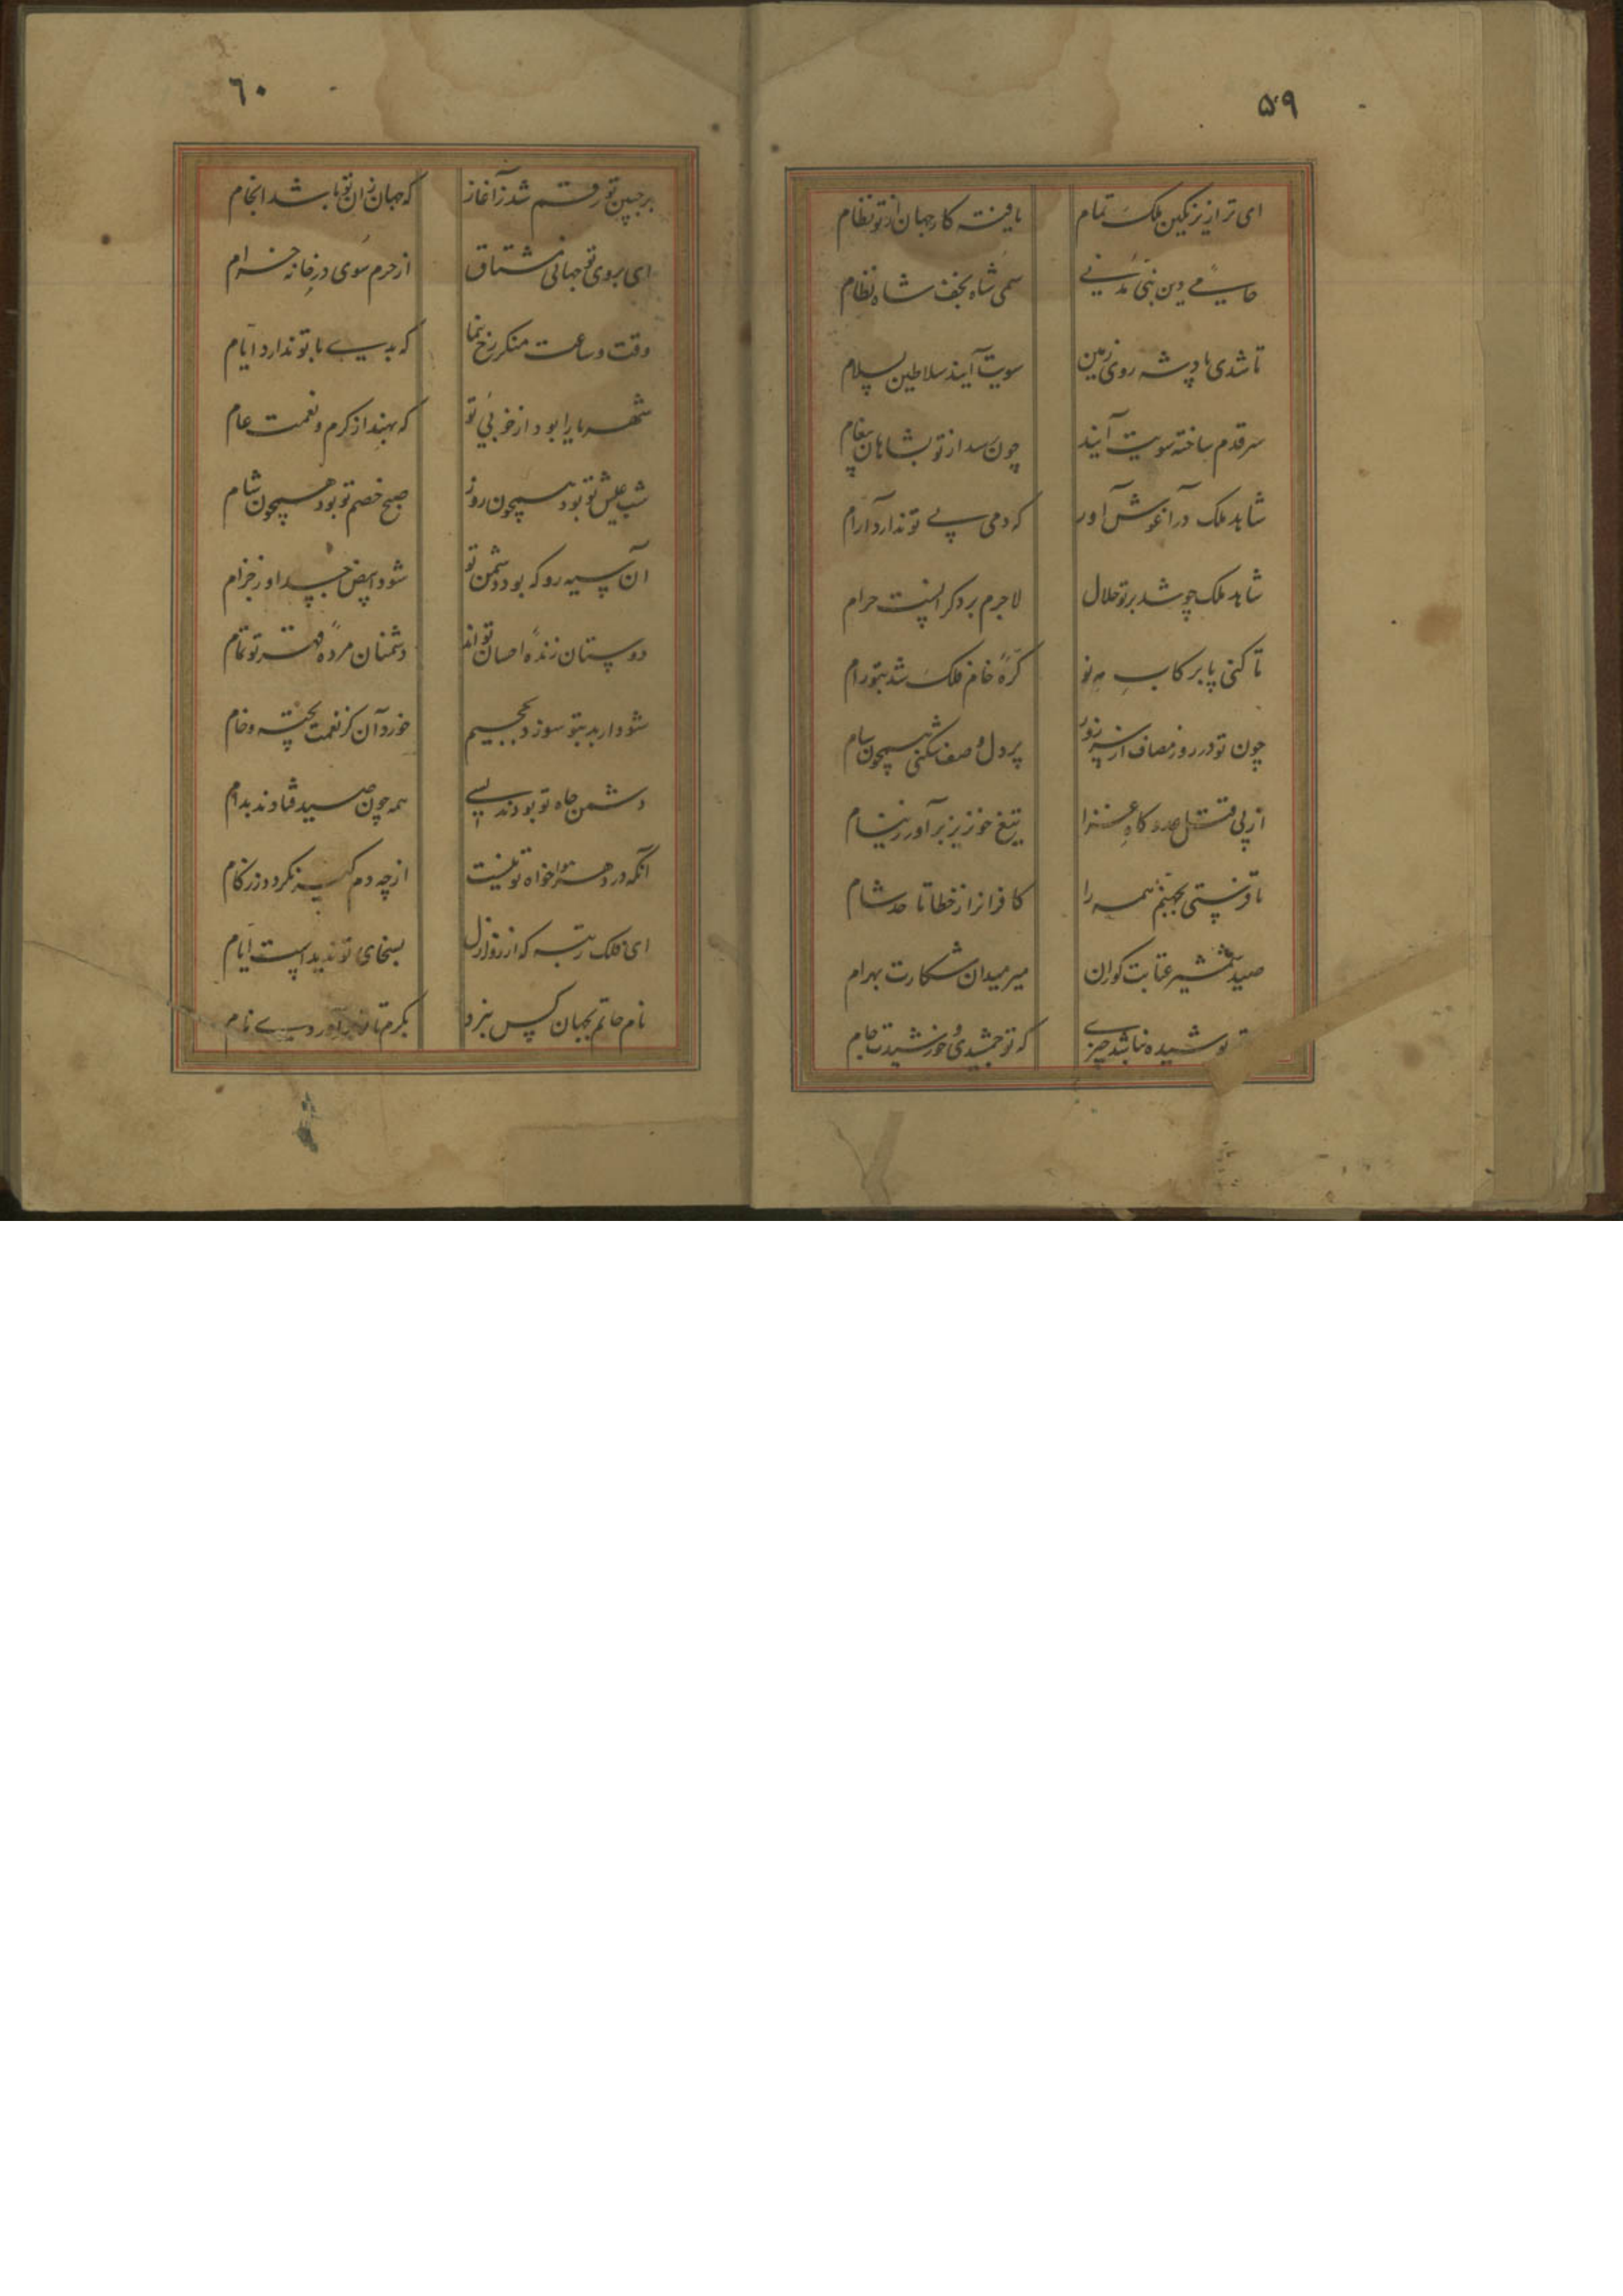 ۵۹
ای ترا زیر نگین ملک تمام یافته کار جهان از تو نظام
حامی دین نبی مدنی سمی شاه نجف شاه نظام
تا شدی پادشه روی زمین سویت آیند سلاطین بسلام
سر قدم ساخته سویت آیند چون رسد از تو بشاهان پیغام
شاهد ملک در آغوش آور که دمی بی تو ندارد آرام
شاهد ملک چو شد بر تو حلال لاجرم بر دگرانست حرام
تا کنی پا برکاب مه نو کره خام فلک شد بتو رام
چون تو در روز مصاف از سر زور پر دل و صف شکنی همچون سام
از پی قتل عدو گاه غزا تیغ خونریز برآور ز نیام
تا فرستی بجهنم همه را کافرانرا ز خطا تا حد شام
صید شمشیر عتابت گوران میر میدان شکارت بهرام
تو شیده نباشد چیزی که تو جمشیدی و خورشیدت جام
۶۰
بر جبین تو رقم شد ز آغاز که جهان زان تو باشد انجام
ای بروی تو جهانی مشتاق از حرم سوی در خانه خرام
وقت و ساعت منگر رخ بنما که بدی با تو ندارد ایام
شهریارا بود از خوبی تو که نهند از کرم و نعمت عام
شب عیش تو بود همچون روز صبح خصم تو بود همچون شام
آن سیه رو که بود دشمن تو شود ابیض جسد او ز جزام
دوستان زنده احسان تواند دشمنان مرده قهر تو تمام
شود ار بد بتو سوزد بجحیم خورد آن کز نعمت پخته و خام
دشمن جاه تو بودند بسی همه چون صید فتادند بدام
آنکه در دهر هواخواه تو نیست از چه دم گیر نگردد ز زکام
ای فلک رتبه که از روز ازل بسخای تو ندیدست ایام
نام حاتم بجهان کس نبرد بکرم تا برآوردی نام